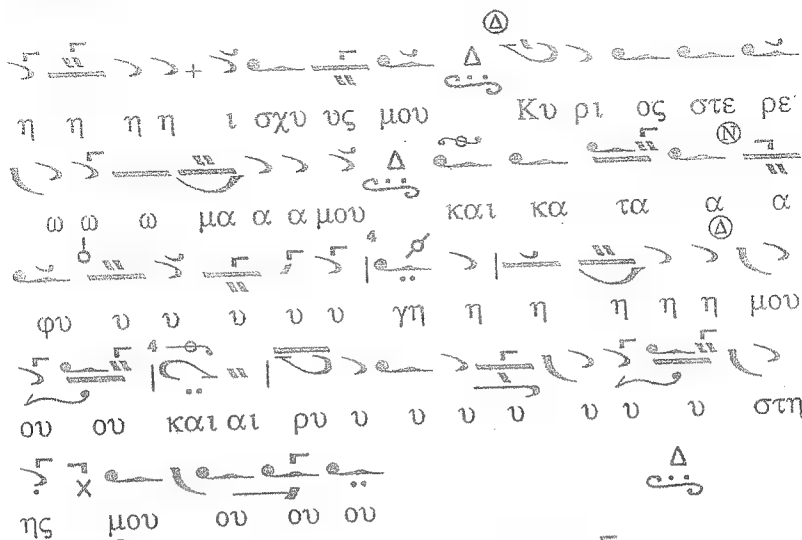 η η η η ι σχυ υς μου Κυ ρι ος στε ρε
ω ω ω μα α α μου και κα τα α α
φυ υ υ υ υ υ γη η η η η η μου
ου ου και αι ρυ υ υ υ υ υ υ υ στη
ης μου ου ου ου